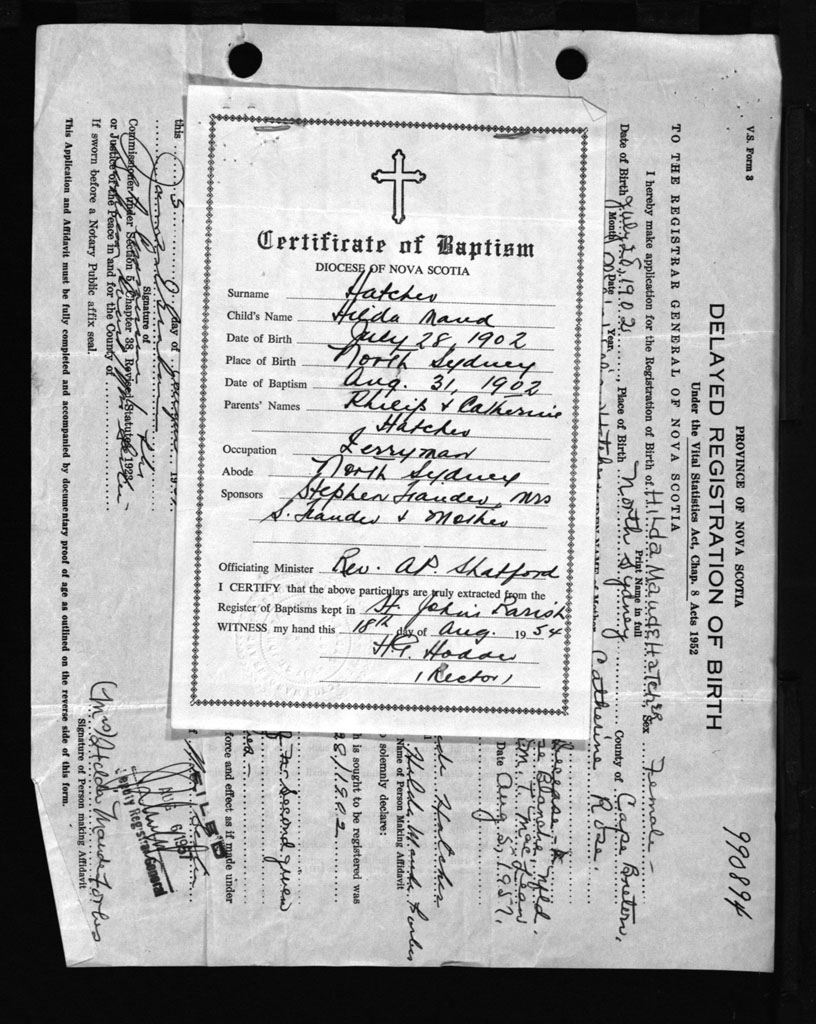 Certificate of Baptism
DIOCESE OF NOVA SCOTIA
Surname Hatcher
Child's Name Hilda Maud
Date of Birth July 28, 1902
Place of Birth North Sydney
Date of Baptism Aug. 31, 1902
Parents' Names Philip & Catherine
Hatcher
Occupation Ferryman
Abode North Sydney
Sponsors Stephen Mrs
S. & Mother
Officiating Minister Rev. A.P. Shatford
I CERTIFY that the above particulars are truly extracted from the
Register of Baptisms kept in St. John's Parish
WITNESS my hand this 18th day of Aug. 1954
H.T. Hodder
(Rector)
V.S. Form 3
990894
PROVINCE OF NOVA SCOTIA
DELAYED REGISTRATION OF BIRTH
Under the Vital Statistics Act, Chap. 8 Acts 1952
TO THE REGISTRAR GENERAL OF NOVA SCOTIA
I hereby make application for the Registration of Birth of Hilda Maude Hatcher Sex Female
Print Name in full
Date of Birth July 28, 1902, Place of Birth North Sydney County of Cape Breton.
Month Date Year
Catherine Rose.
Blanche, Nfld.
MacLean
Date Aug. 5, 1957.
Hatcher
Hilda Maude Forbes
Name of Person Making Affidavit
solemnly declare:
h is sought to be registered was
28/1902
Second given
force and effect as if made under
this 5 day of
Signature of
Commissioner under Section 5, Chapter 38, Revised Statutes 1923
or Justice of the Peace in and for the County of
If sworn before a Notary Public affix seal.
FILED
AUG 6 1957
Deputy Registrar General
(Mrs) Hilda Maude Forbes
Signature of Person making Affidavit
This Application and Affidavit must be fully completed and accompanied by documentary proof of age as outlined on the reverse side of this form.